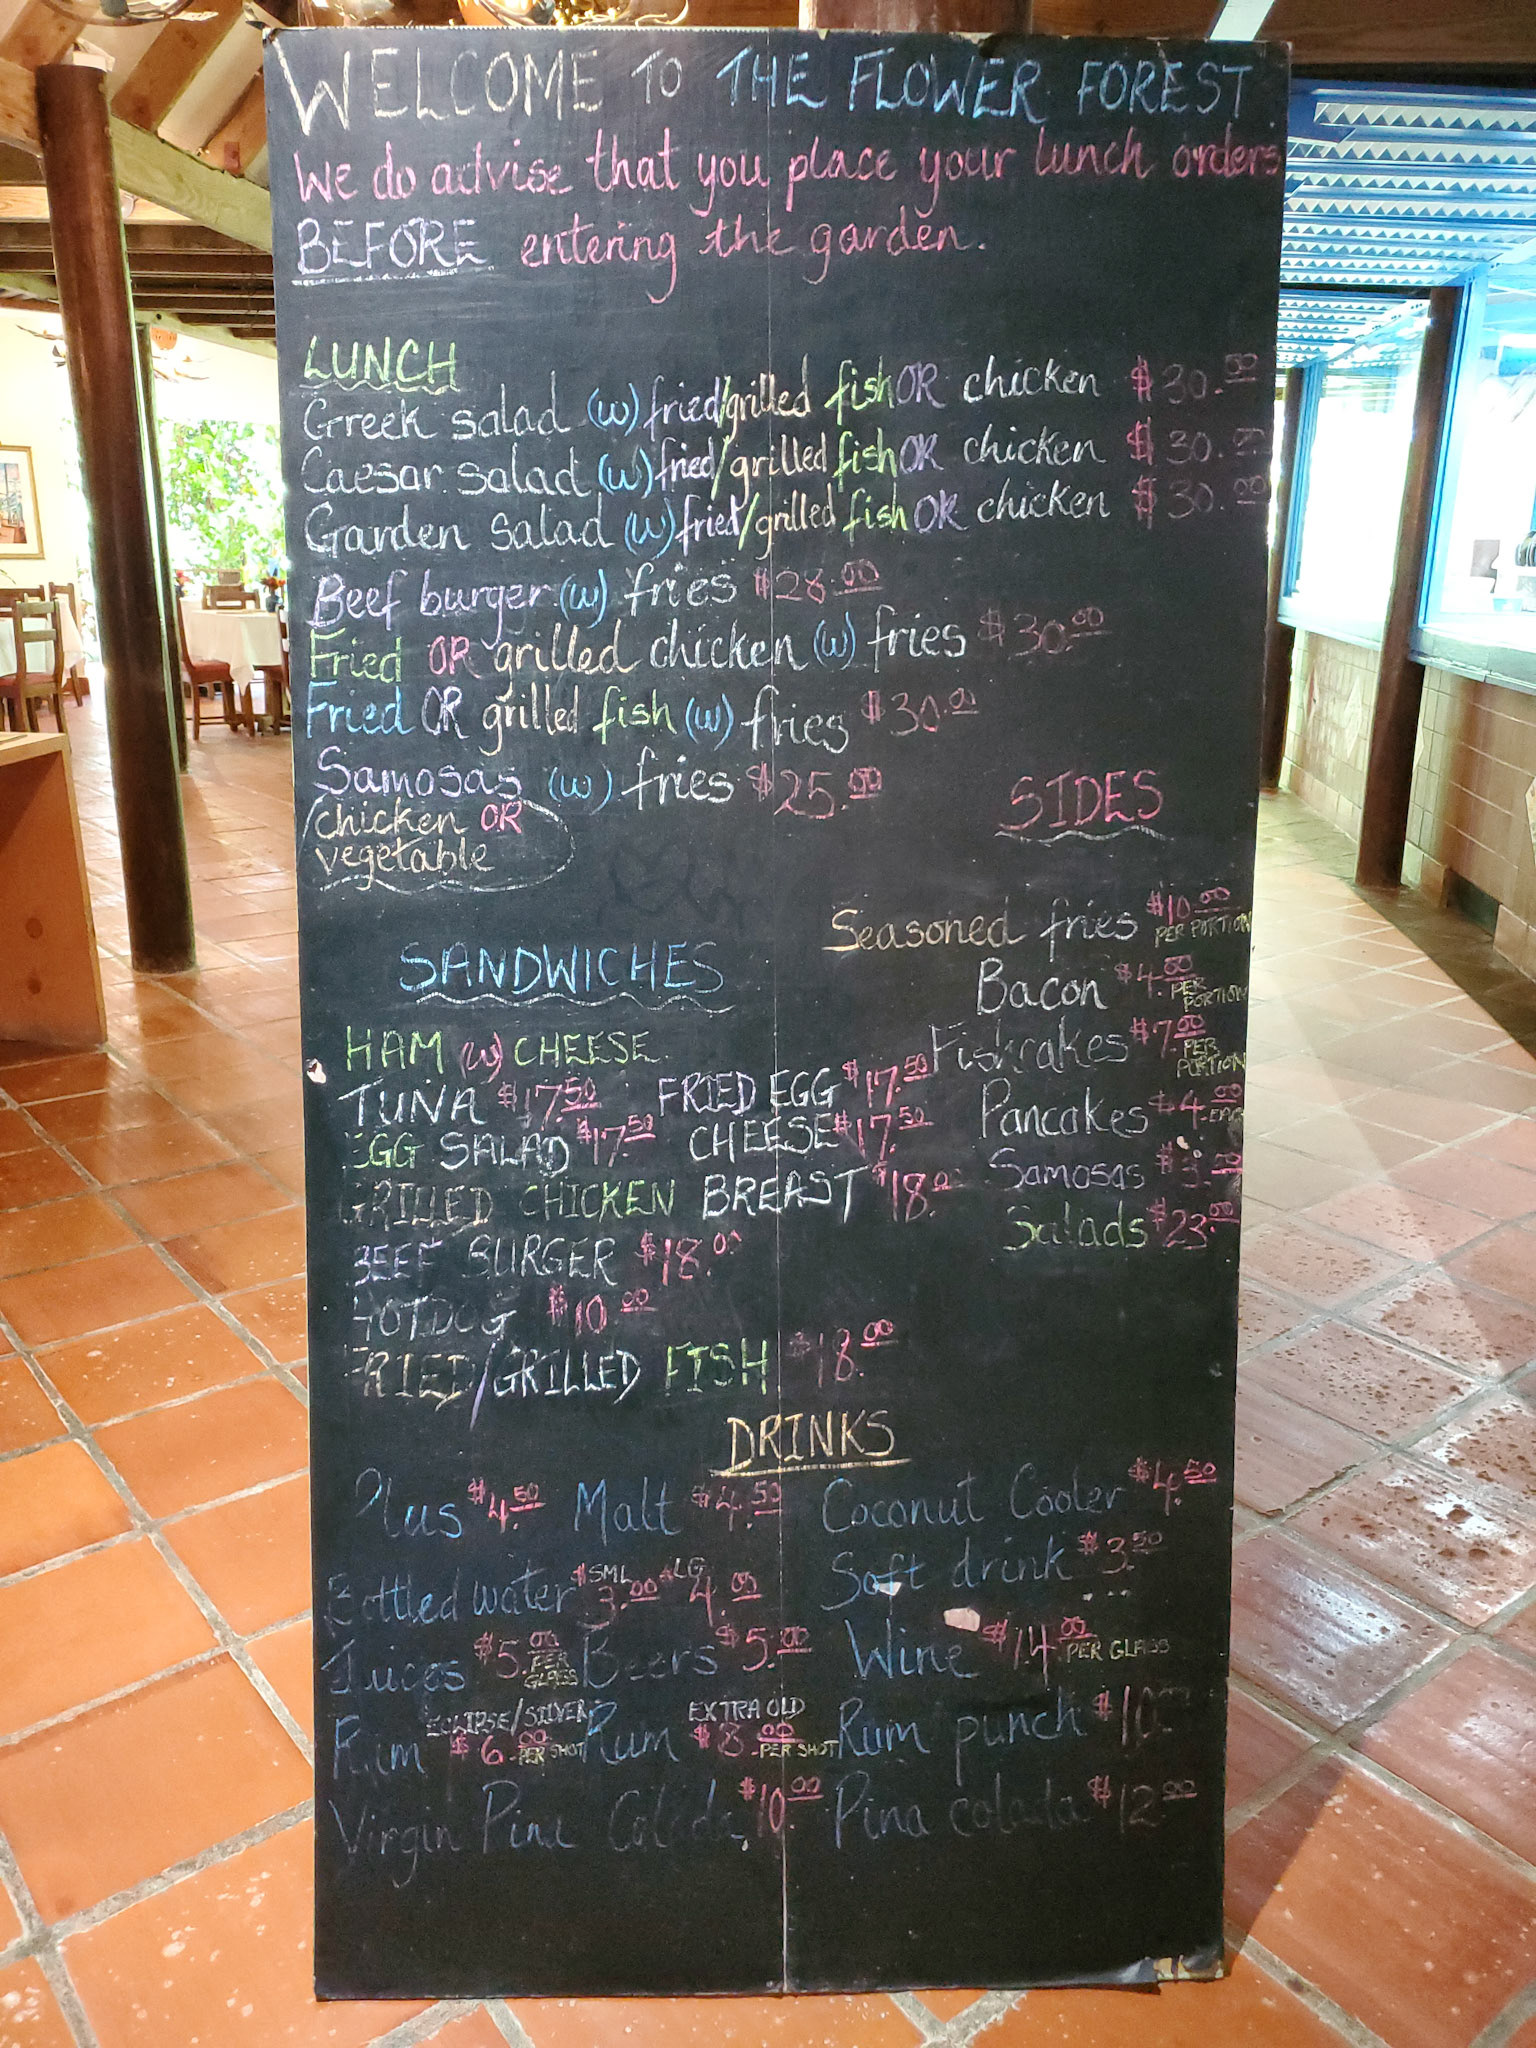 WELCOME TO THE FLOWER FOREST
We do advise that you place your lunch orders
BEFORE entering the garden.
LUNCH
Greek salad (w) fried/grilled fish OR chicken $30.00
Caesar salad (w) fried/grilled fish OR chicken $30.00
Garden salad (w) fried/grilled fish OR chicken $30.00
Beef burger (w) fries $28.00
Fried OR grilled chicken (w) fries $30.00
Fried OR grilled fish (w) fries $30.00
Samosas (w) fries $25.00
chicken OR
vegetable
SIDES
Seasoned fries $10.00 PER PORTION
Bacon $4.00 PER PORTION
Fishcakes $7.00 PER PORTION
Pancakes $4.00 EACH
Samosas $3.00
Salads $23.00
SANDWICHES
HAM (w) CHEESE
TUNA $17.50 FRIED EGG $17.50
EGG SALAD $17.50 CHEESE $17.50
GRILLED CHICKEN BREAST $18.00
BEEF BURGER $18.00
HOTDOG $10.00
FRIED/GRILLED FISH $18.00
DRINKS
Plus $4.50 Malt $4.50 Coconut Cooler $4.50
Bottled water SML $3.00 LG $4.00 Soft drink $3.50
Juices $5.00 PER GLASS Beers $5.00 Wine $14.00 PER GLASS
Rum ECLIPSE/SILVER $6.00 PER SHOT Rum EXTRA OLD $8.00 PER SHOT Rum punch $10.00
Virgin Pina Colada $10.00 Pina colada $12.00